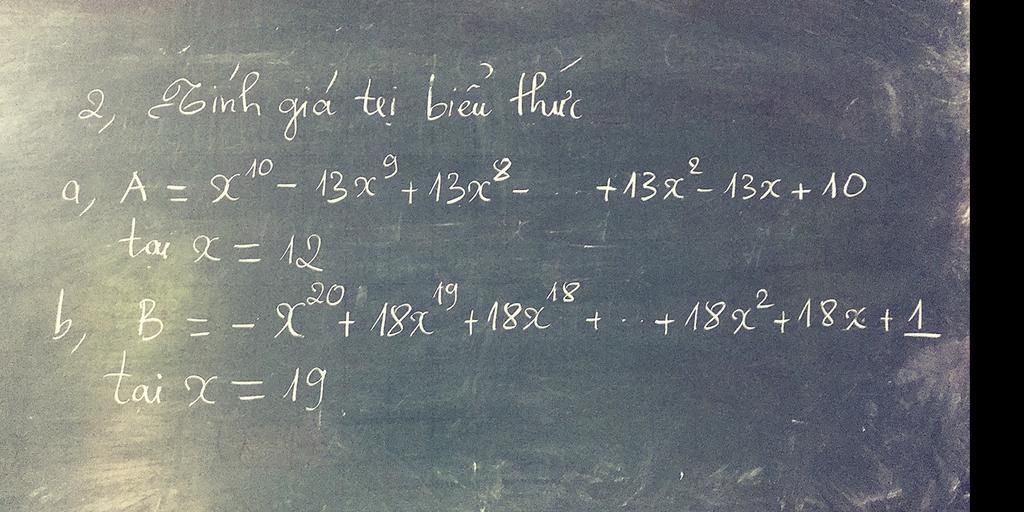 2, Tính giá tại biểu thức
a, A = x¹⁰ - 13x⁹ + 13x⁸ - ... + 13x² - 13x + 10
tại x = 12
b, B = - x²⁰ + 18x¹⁹ + 18x¹⁸ + ... + 18x² + 18x + 1
tại x = 19